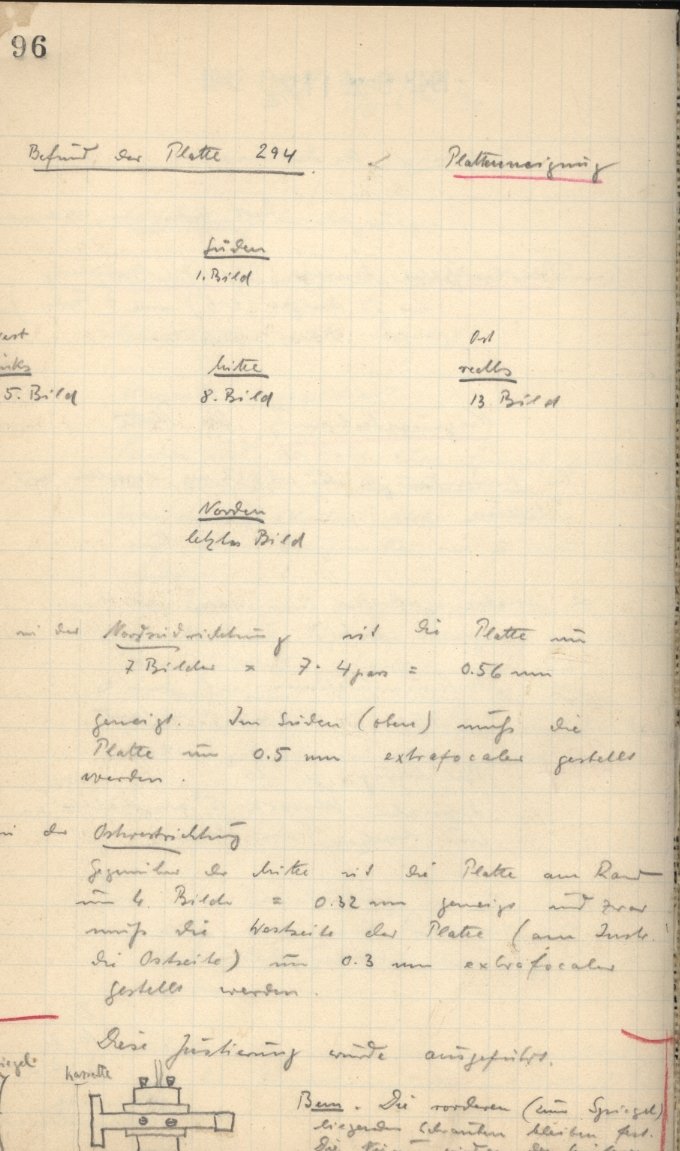 96
Befund der Platte 294 Plattenneigung
Süden
1. Bild
est Ost
nks Mitte rechts
5. Bild 8. Bild 13 Bild
Norden
letztes Bild
in der Nordsüdrichtung ist die Platte um
7 Bilder × 7 · 4 pars = 0.56 mm
geneigt. Im Süden (oben) muß die
Platte um 0.5 mm extrafocaler gestellt
werden.
in der Ostwestrichtung
Gegenüber der Mitte ist die Platte am Rand
um 4 Bilder = 0.32 mm geneigt und zwar
muß die Westseite der Platte (am Instr.
die Ostseite) um 0.3 mm extrafocaler
gestellt werden.
Diese Justierung wurde ausgeführt.
Kassette
Bem. Die vorderen (zum Spiegel)
liegenden Schrauben bleiben fest.